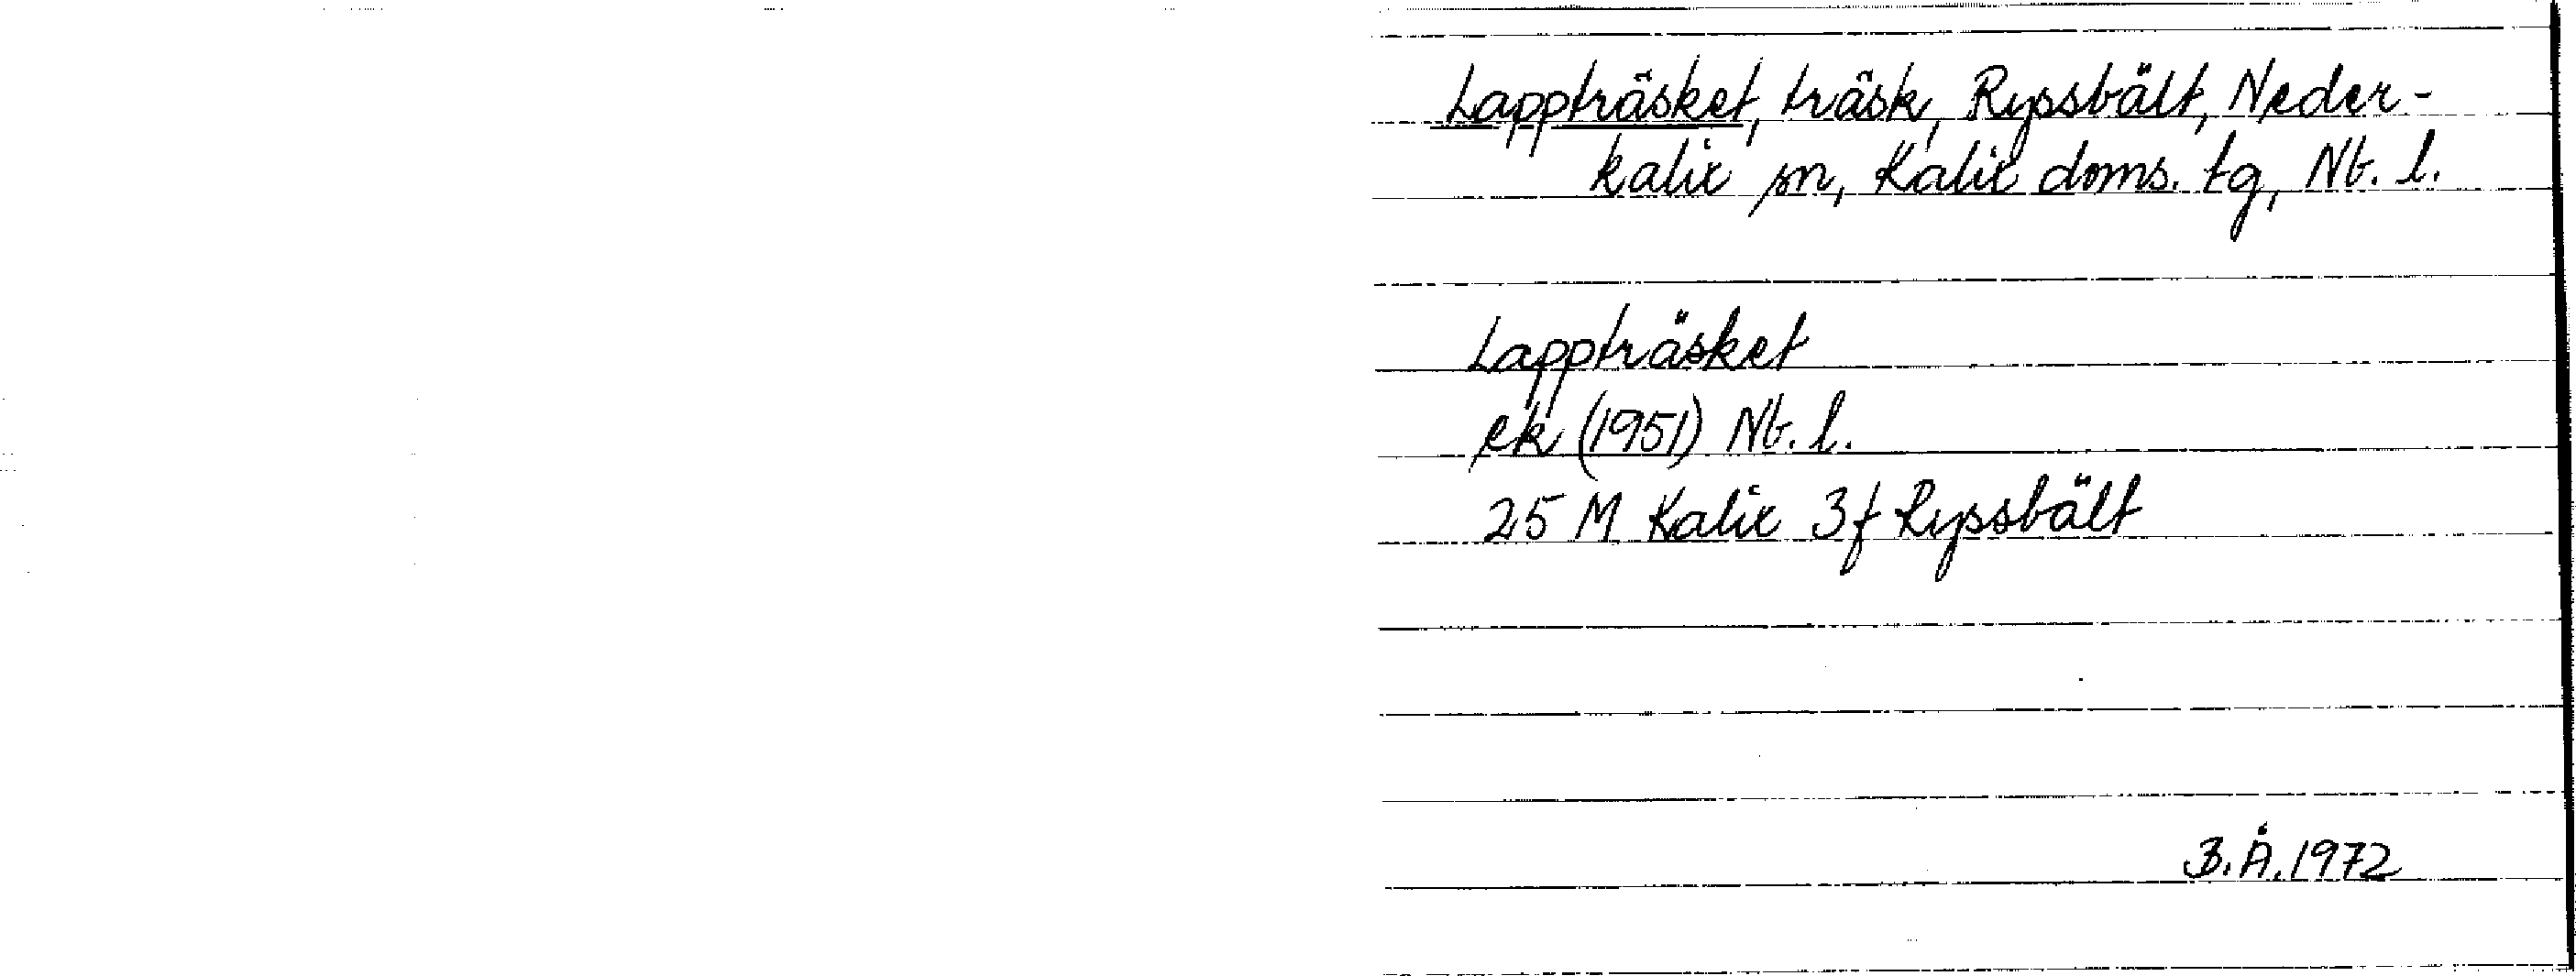 Lappträsket, träsk, Ryssbält, Neder-
kalix sn, Kalix doms. tg, Nb. l.
Lappträsket
ek (1951) Nb. l.
25 M Kalix 3f Ryssbält
B.Å. 1972